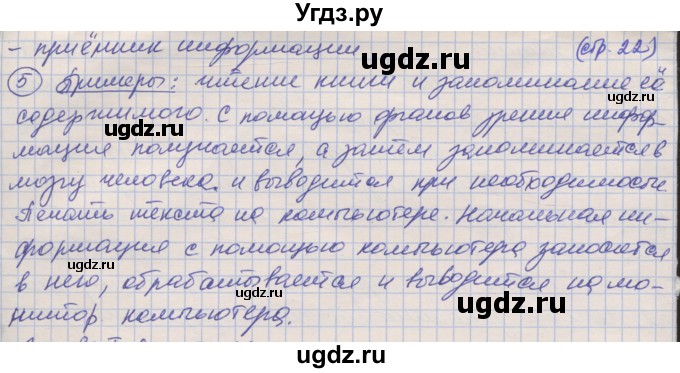 Угдз.ру
- приёмник информации (стр. 22)
5 Примеры: чтение книги и запоминание её
содержимого. С помощью органов зрения инфор-
мация получается, а затем запоминается в
мозгу человека и выводится при необходимости.
Печать текста на компьютере. Начальная ин-
формация с помощью компьютера заносится
в него, обрабатывается и выводится на мо-
нитор компьютера.
ugdz.ru
ugdz.ru
ugdz.ru
ugdz.ru
ugdz.ru
ugdz.ru
ugdz.ru
ugdz.ru
ugdz.ru